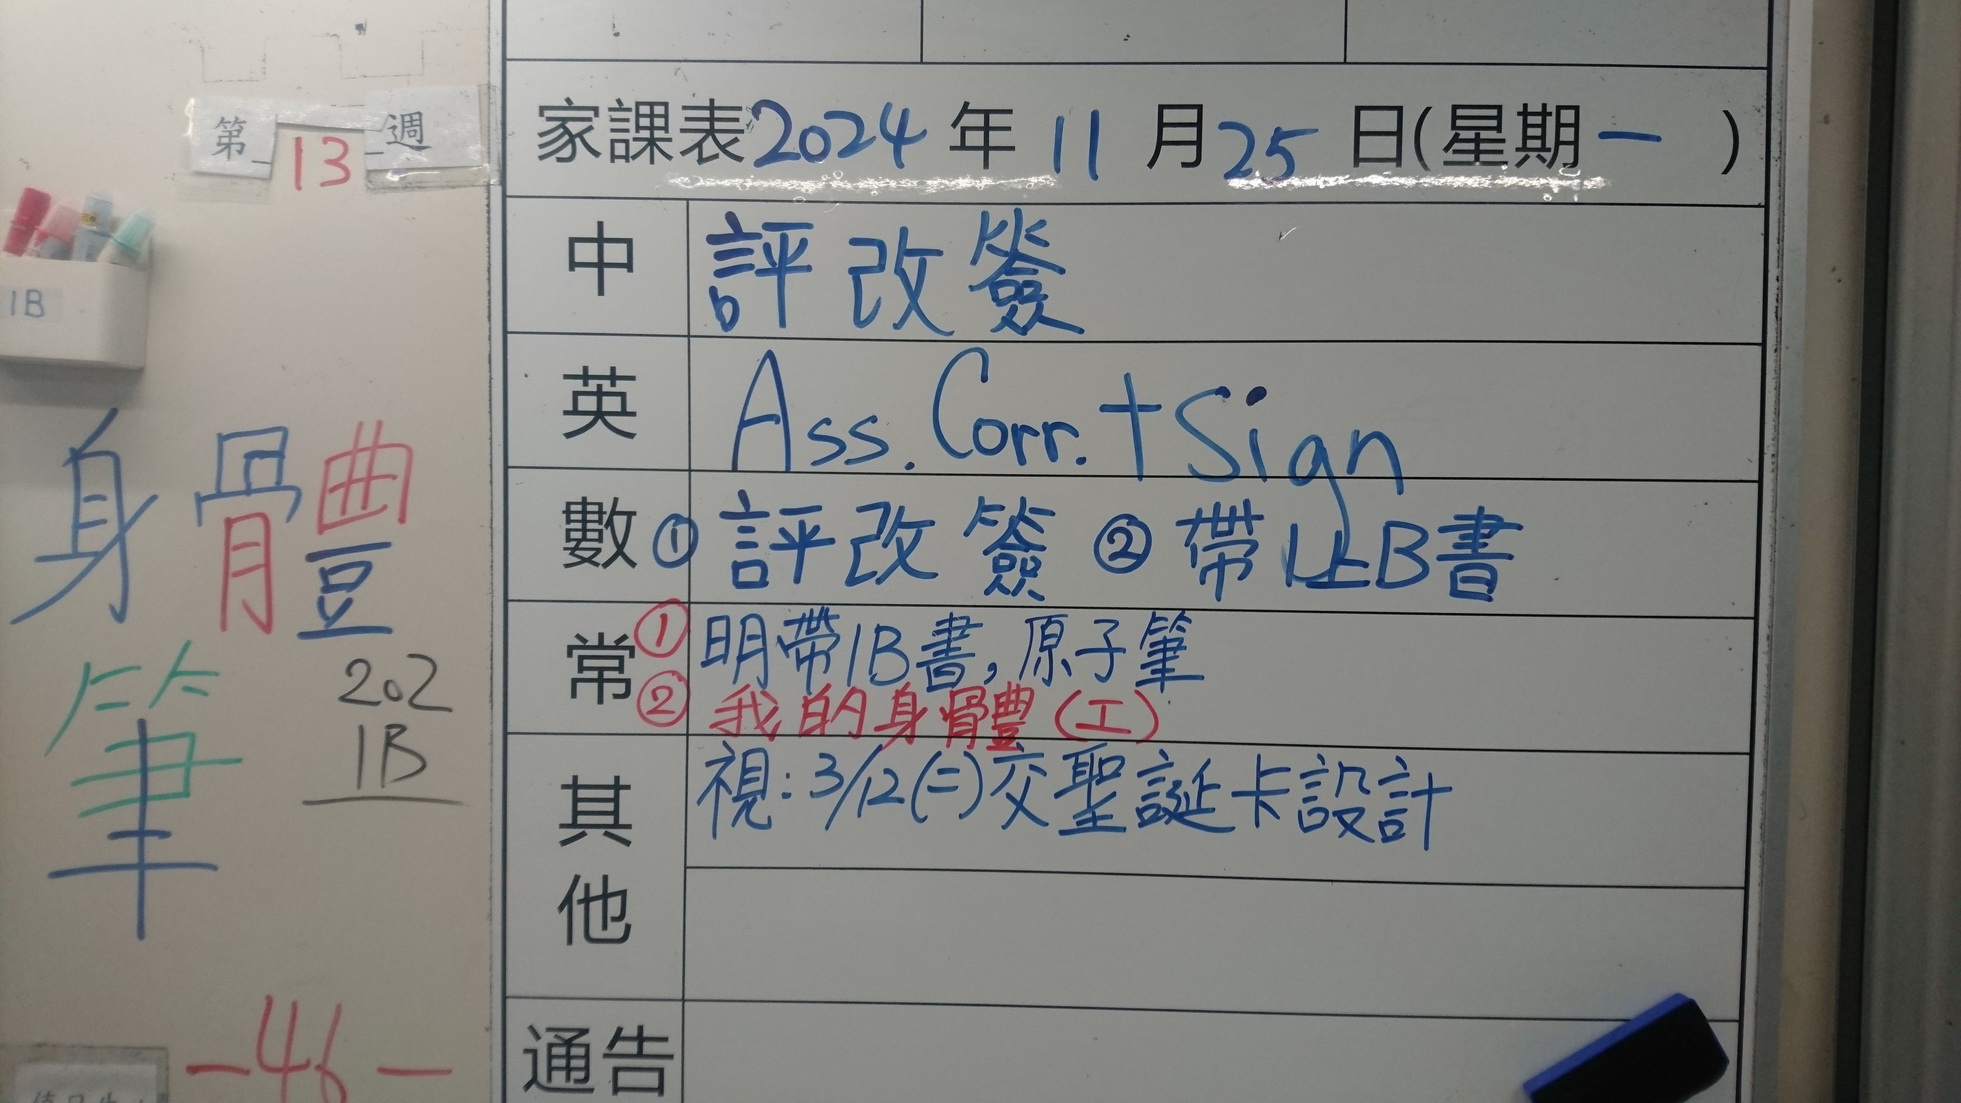 第 13 週
1B
身體
筆
202
1B
-46-
家課表2024年11月25日(星期一)
中 評改簽
英 Ass. Corr. + Sign
數 ①評改簽 ②帶1上B書
常 ①明帶1B書,原子筆
②我的身體(工)
其他 視:3/12(二)交聖誕卡設計
通告